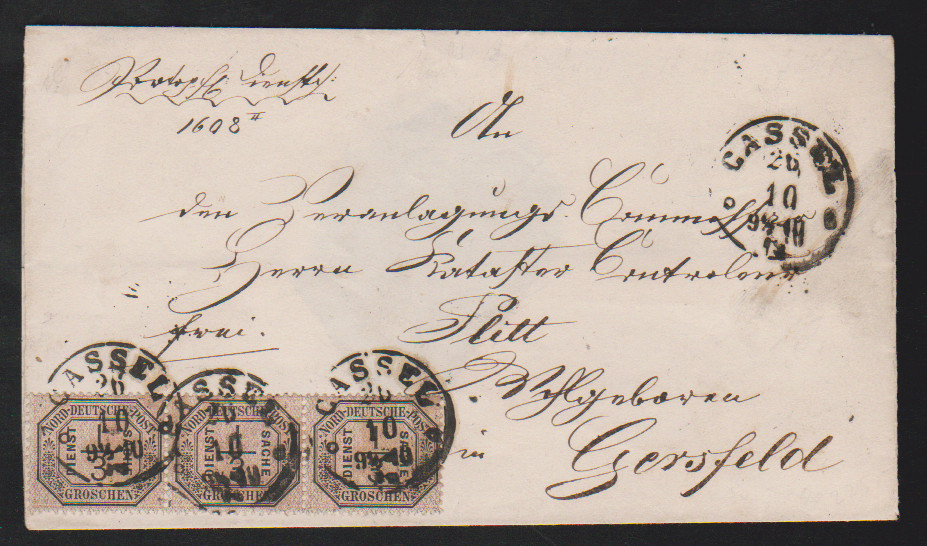 1608 II
An
den Veranlagungs-Commissär
Herrn Kataster Controleur
frei. Plitt
Wohlgeboren
in Gersfeld
CASSEL
26
10
9½-10
CASSEL
26
10
9½-10
CASSEL
26
10
CASSEL
26
10
9½-10
NORD-DEUTSCHE-POST
DIENST SACHE
GROSCHEN
NORD-DEUTSCHE-POST
DIENST SACHE
GROSCHEN
NORD-DEUTSCHE-POST
DIENST SACHE
GROSCHEN